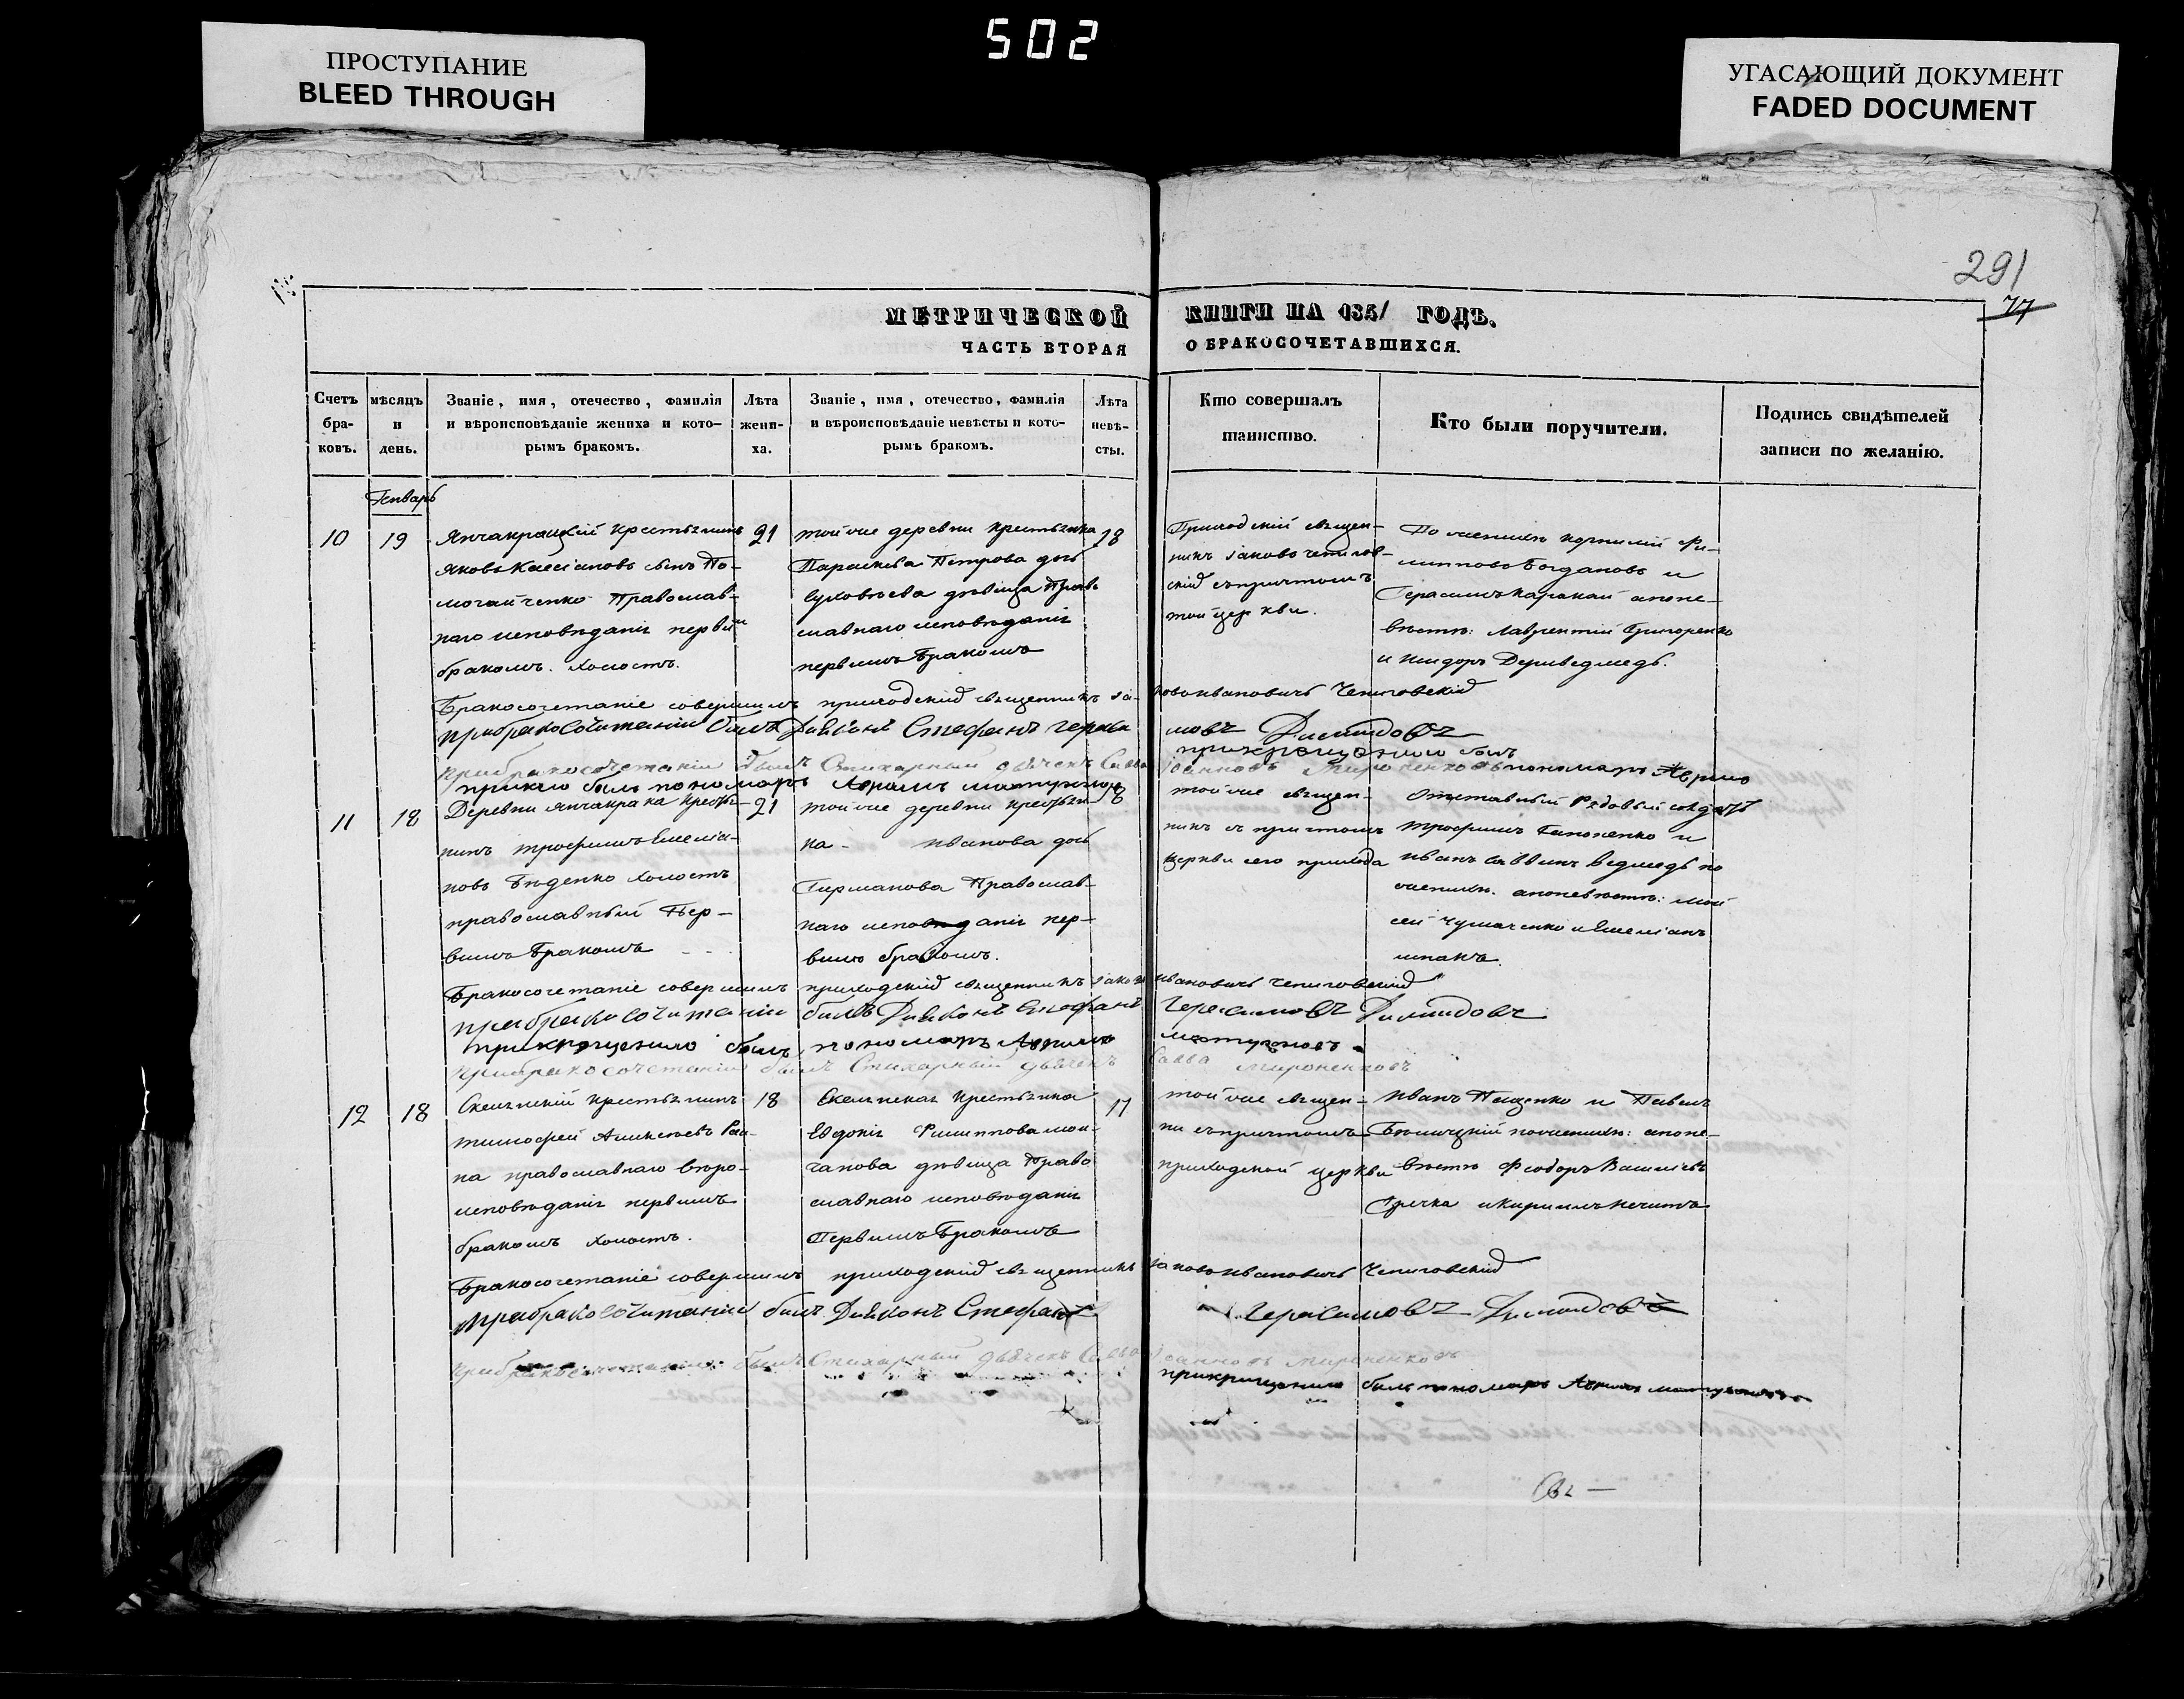 502
ПРОСТУПАНИЕ
BLEED THROUGH
УГАСАЮЩИЙ ДОКУМЕНТ
FADED DOCUMENT
291
77
МЕТРИЧЕСКОЙ КНИГИ НА 1851 ГОДЪ.
ЧАСТЬ ВТОРАЯ О БРАКОСОЧЕТАВШИХСЯ.
Счетъ
бра-
ковъ.
мѣсяцъ
и
день.
Званіе, имя, отечество, фамилія
и вѣроисповѣданіе жениха и кото-
рымъ бракомъ.
Лѣта
жени-
ха.
Званіе, имя, отечество, фамилія
и вѣроисповѣданіе невѣсты и кото-
рымъ бракомъ.
Лѣта
невѣ-
сты.
Кто совершалъ
таинство.
Кто были поручители.
Подпись свидѣтелей
записи по желанію.
Январь
10
19
Янчакрацкій крестьянинъ
Яковъ Касіановъ сынъ По-
могайченко Православ-
наго исповѣданія первым
бракомъ. холостъ.
21
тойже деревни крестьянка
Параскева Петрова дочь
девица Право
славнаго исповѣданія
первымъ бракомъ
18
Приходскій священ-
никъ Іаковъ Чепигов-
скій съ причтомъ
той церкви.
По женихѣ Корнилій Фи-
липповъ Богдановъ и
Герасимъ Каракай апоне-
вѣстѣ: Лаврентій Григоренко
и Исидоръ Дериведмедь.
Бракосочетаніе совершилъ приходскій священникъ Іа-ковъ Ивановичъ Чепиговскій
прибракосочитаніи былъ Діяконъ Стефанъ Гераси мовъ Димидовъ
прибракосочетаніи былъ Стихарный дьячекъ Савва Іоанновъ Мироненковъ
11
18
Деревни Янчакрака крестья-
нинъ Трофимъ Емеліа-
новъ Бѣденко холостъ
православный Пер-
вымъ бракомъ
21
тойже деревни крестьян
ка - Иванова дочь
Германова Православ-
наго исповѣданія пер-
вымъ бракомъ.
18
тойже священ-
никъ съ причтомъ
церкви сего прихода
Отставный Рядовый солдатъ
Трофимъ Гапоненко и
Иванъ Саввинъ Ведмедь по
женихѣ. апоневѣстѣ: Мой
сей Чумаченко и Емеліанъ
шпакъ.
Бракосочетаніе совершилъ приходскій священникъ Іаковъ Ивановичъ Чепиговскій
прибракосочитаніи былъ Діяконъ Стефанъ Герасимовъ Димидовъ
прибракосочетаніи былъ Стихарный дьячекъ Савва Мироненковъ
12
18
Скельскій крестьянинъ
Тимофей Алексѣевъ
на православнаго вѣро-
исповѣданія первымъ
бракомъ холостъ.
18
Скельская крестьянка
Евдокія Филиппова мол-
чанова дѣвица Право
славнаго исповѣданія
Первымъ бракомъ
17
тойже священ-
ни съ причтомъ
приходской церкви
Иванъ Пащенко и Павелъ
Бѣлицкій поженихѣ: апоне-
вѣстѣ Феодоръ Василіевъ
Гречка и Кириллъ Нечитъ
Бракосочетаніе совершилъ приходскій священникъ Іаковъ Ивановичъ Чепиговскій
прибракосочитаніи былъ Діяконъ Стефанъ Герасимовъ Димидовъ
прибракосочетаніи былъ Стихарный дьячекъ Савва Іоанновъ Мироненковъ